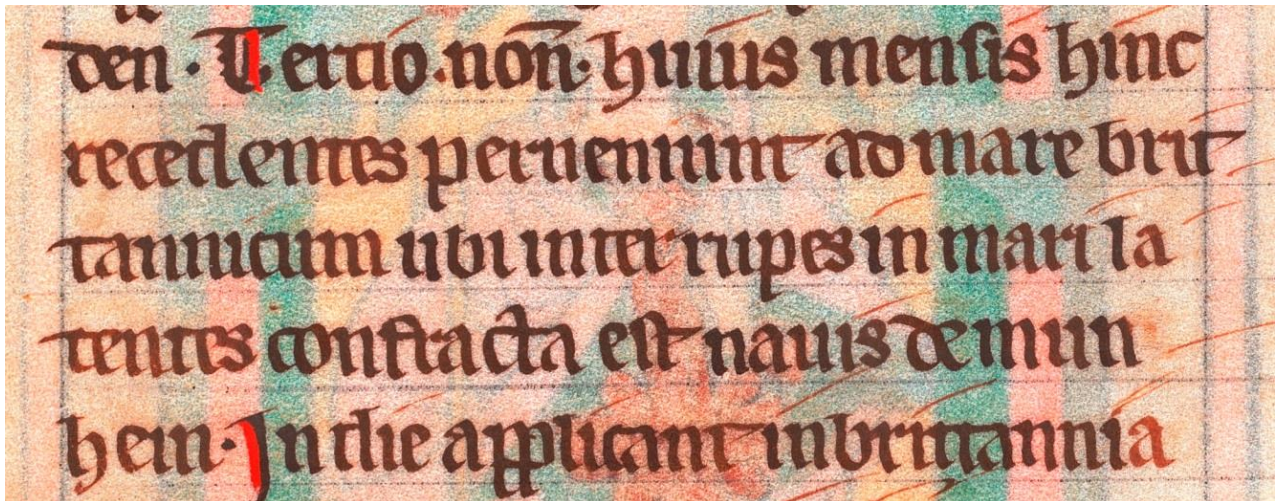 den · Tertio · non̄ · huius mensis hinc
recedentes perueniunt ad mare brit
tannicum ubi inter rupes in mari la
tentes confracta est nauis de mun
hein · In die applicant in brittannia